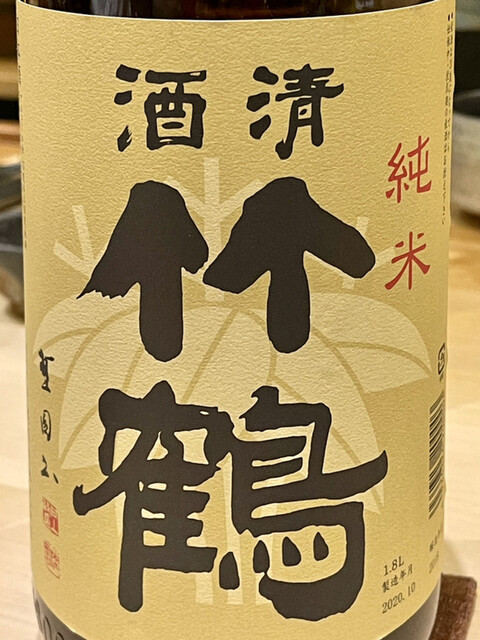 清酒
竹鶴
純米
1.8L
製造年月
2020.10